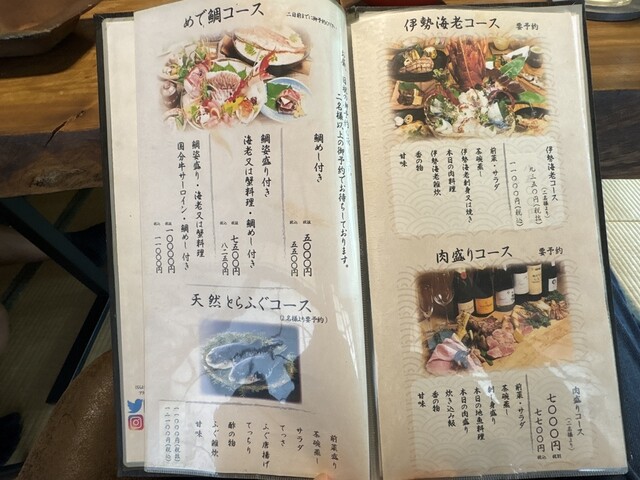 めで鯛コース
二名様以上の御予約でお待ちしております。
鯛めし付き
税抜 五〇〇〇円
税込 五五〇〇円
鯛姿盛り付き
海老又は蟹料理・鯛めし付き
税抜 七五〇〇円
税込 八二五〇円
鯛姿盛り・海老又は蟹料理
国分牛サーロイン・鯛めし付き
税抜 一〇〇〇〇円
税込 一一〇〇〇円
天然とらふぐコース
(2名様より要予約)
前菜盛り
茶碗蒸し
サラダ
てっさ
ふぐ唐揚げ
てっちり
酢の物
ふぐ雑炊
甘味
伊勢海老コース 要予約
伊勢海老コース
(二名様より)
一一〇〇〇円(税込)
前菜・サラダ
茶碗蒸し
伊勢海老刺身又は焼き
本日の肉料理
伊勢海老雑炊
香の物
甘味
肉盛りコース 要予約
肉盛りコース
(二名様より)
七〇〇〇円 税抜
七七〇〇円 税込
前菜・サラダ
茶碗蒸し
刺身盛り
本日の地魚料理
本日の肉盛り
炊き込み飯
香の物
甘味